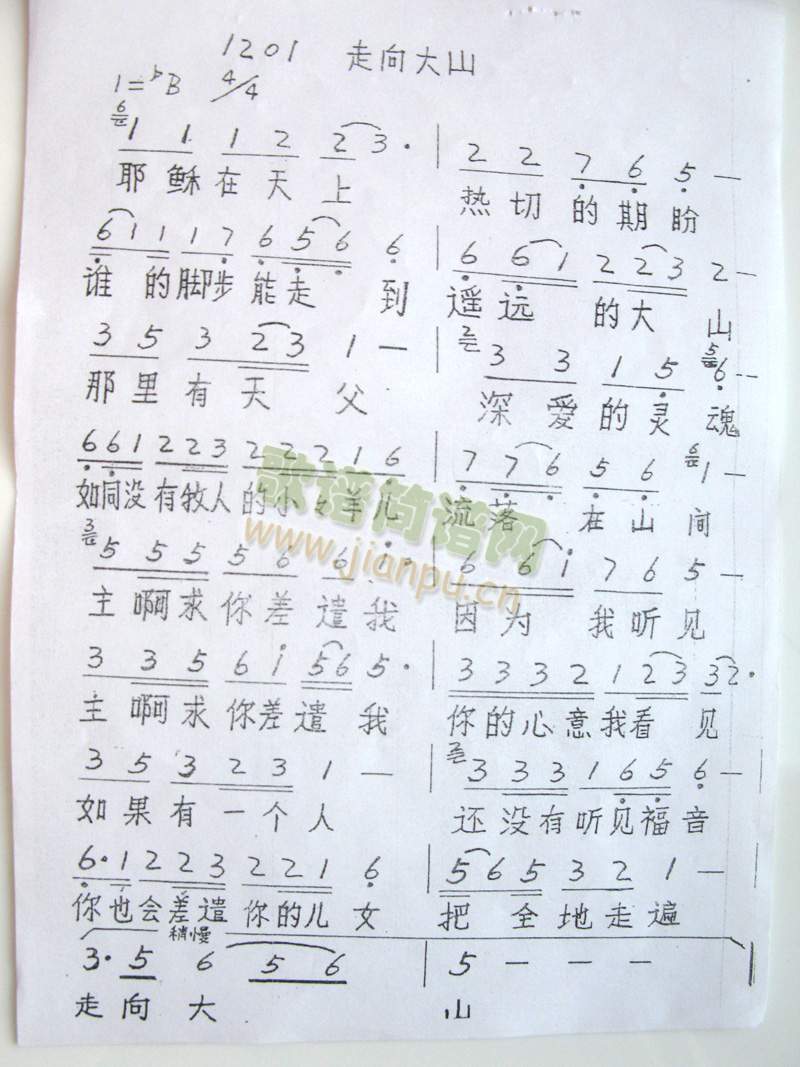 1201 走向大山
1=♭B 4/4
6 1 1 1 2 2 3 · | 2 2 7 6 5 —
耶稣在天上 热切的期盼
6 1 1 1 7 6 5 6 6 | 6 6 1 2 2 3 2 —
谁的脚步能走到 遥远的大山
3 5 3 2 3 1 — | 2 3 3 1 5 5 6 ·
那里有天父 深爱的灵魂
6 6 1 2 2 3 2 2 2 1 6 | 7 7 6 5 6 6 1 —
如同没有牧人的小々羊儿 流落在山间
3 5 5 5 5 6 6 i · | 6 6 i 7 6 5 —
主啊求你差遣我 因为我听见
3 3 5 6 i 5 6 5 · | 3 3 3 2 1 2 3 3 2 ·
主啊求你差遣我 你的心意我看见
3 5 3 2 3 1 — | 2 3 3 3 1 6 5 6 —
如果有一个人 还没有听见福音
6 · 1 2 2 3 2 2 1 6 | 5 6 5 3 2 1 —
你也会差遣你的儿女 把全地走遍
稍慢
3 · 5 6 5 6 | 5 — — —
走向大 山
歌谱简谱网
www.jianpu.cn